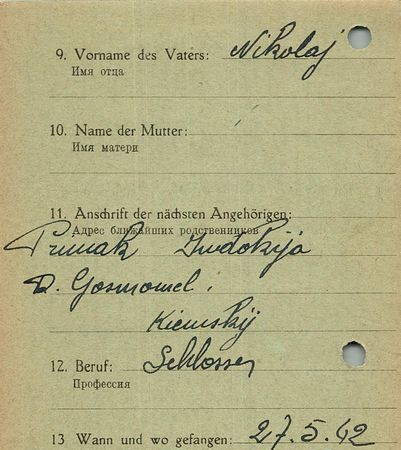 9. Vorname des Vaters: Nikolaj
Имя отца
10. Name der Mutter:
Имя матери
11. Anschrift der nächsten Angehörigen:
Адрес ближайших родственников
D. Gosmomel.
Kiewskij
12. Beruf: Schlosser
Профессия
13 Wann und wo gefangen: 27.5.42